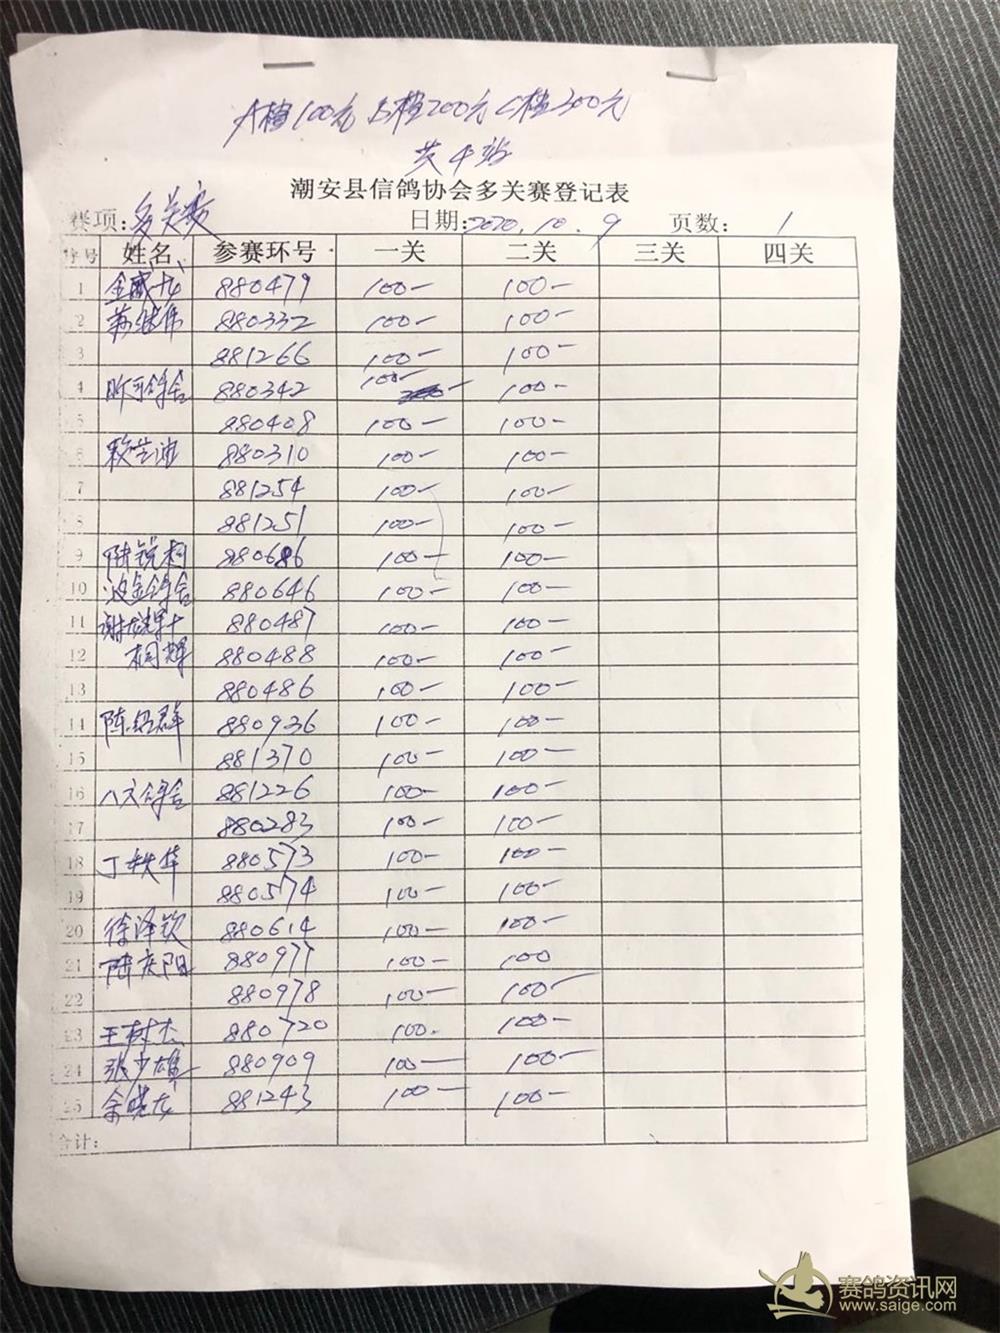 A档100元 B档200元 C档300元
共4站
潮安县信鸽协会多关赛登记表
赛项:多关赛 日期:2020.10.9 页数: 1
序号 姓名 参赛环号 一关 二关 三关 四关
1 880479 100- 100-
2 苏继伟 880332 100- 100-
3 881266 100- 100-
4 昕可鸽舍 880342 100- 100-
5 880408 100- 100-
6 880310 100- 100-
7 881254 100- 100-
8 881251 100- 100-
9 陆锐柯 880686 100- 100-
10 鸽舍 880646 100- 100-
11 880487 100- 100-
12 桐辉 880488 100- 100-
13 880486 100- 100-
14 880936 100- 100-
15 881370 100- 100-
16 八六鸽舍 881226 100- 100-
17 880283 100- 100-
18 丁轶华 880573 100- 100-
19 880574 100- 100-
20 徐泽钦 880614 100- 100-
21 陆庆阳 880977 100- 100
22 880978 100- 100-
23 王树杰 880720 100- 100-
24 张少雄 880909 100- 100-
25 余晓龙 881243 100- 100-
合计:
赛鸽资讯网
www.saige.com